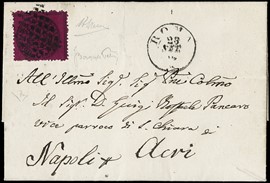 ROMA
23
SET
All' Illmo Sig. Sig. Pne Colmo
Il Sig. D. Luigi Raffaele Pancaro
vice parroco di S. Chiara di
Napoli Acri